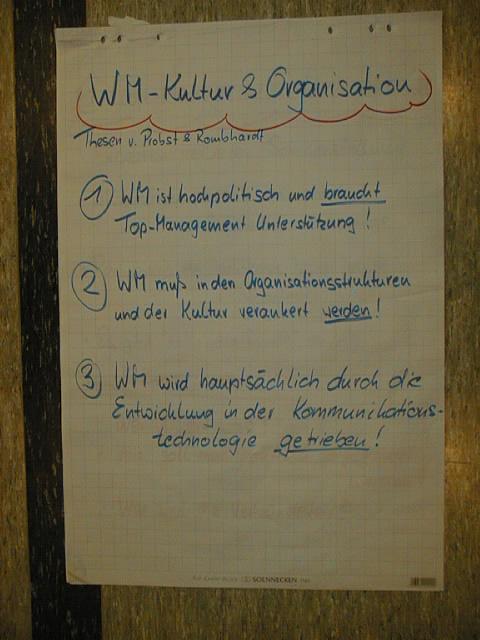 WM-Kultur & Organisation
Thesen v. Probst & Rombhardt
1 WM ist hochpolitisch und braucht
Top-Management Unterstützung!
2 WM muß in den Organisationsstrukturen
und der Kultur verankert werden!
3 WM wird hauptsächlich durch die
Entwicklung in der Kommunikations-
technologie getrieben!
SOENNECKEN